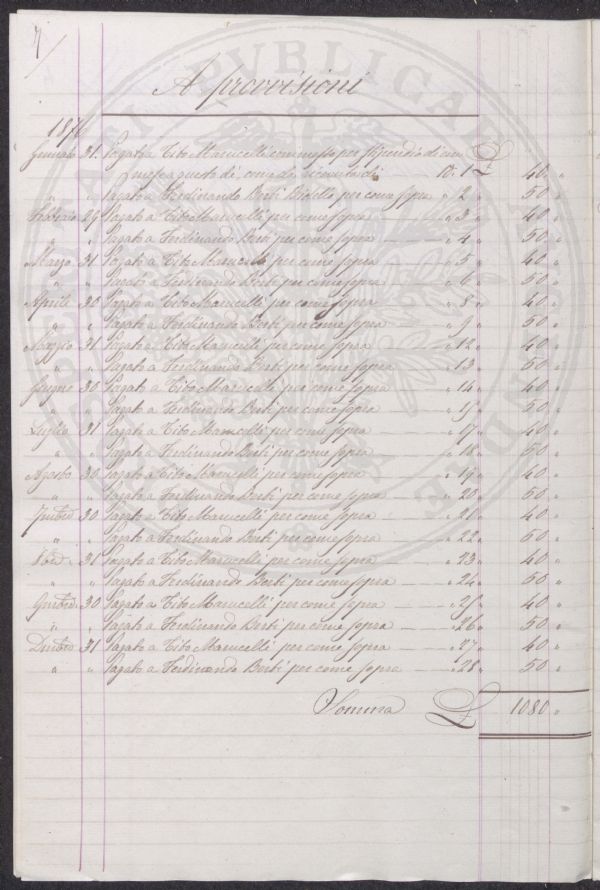 A provvisioni
1876
Gennaio 31. Pagati a Tito Marucelli commesso per stipendio di un
mese a questo dì, come da ricevuta di N. 1 £ 40 "
" " Pagato a Ferdinando Berti Bidello per come sopra " 2 " 50 "
Febbraio 29 Pagato a Tito Marucelli per come sopra " 3 " 40 "
" " Pagato a Ferdinando Berti per come sopra " 4 " 50 "
Marzo 31 Pagato a Tito Marucelli per come sopra " 5 " 40 "
" " Pagato a Ferdinando Berti per come sopra " 6 " 50 "
Aprile 30 Pagato a Tito Marucelli per come sopra " 8 " 40 "
" " Pagato a Ferdinando Berti per come sopra " 9 " 50 "
Maggio 31 Pagato a Tito Marucelli per come sopra " 12 " 40 "
" " Pagato a Ferdinando Berti per come sopra " 13 " 50 "
Giugno 30 Pagato a Tito Marucelli per come sopra " 14 " 40 "
" " Pagato a Ferdinando Berti per come sopra " 15 " 50 "
Luglio 31 Pagato a Tito Marucelli per come sopra " 17 " 40 "
" " Pagato a Ferdinando Berti per come sopra " 18 " 50 "
Agosto 30 Pagato a Tito Marucelli per come sopra " 19 " 40 "
" " Pagato a Ferdinando Berti per come sopra " 20 " 50 "
7mbre 30 Pagato a Tito Marucelli per come sopra " 21 " 40 "
" " Pagato a Ferdinando Berti per come sopra " 22 " 50 "
31 Pagato a Tito Marucelli per come sopra " 23 " 40 "
" " Pagato a Ferdinando Berti per come sopra " 24 " 50 "
9mbre 30 Pagato a Tito Marucelli per come sopra " 25 " 40 "
" " Pagato a Ferdinando Berti per come sopra " 26 " 50 "
Dmbre 31 Pagato a Tito Marucelli per come sopra " 27 " 40 "
" " Pagato a Ferdinando Berti per come sopra " 28 " 50 "
Somma £ 1080 "